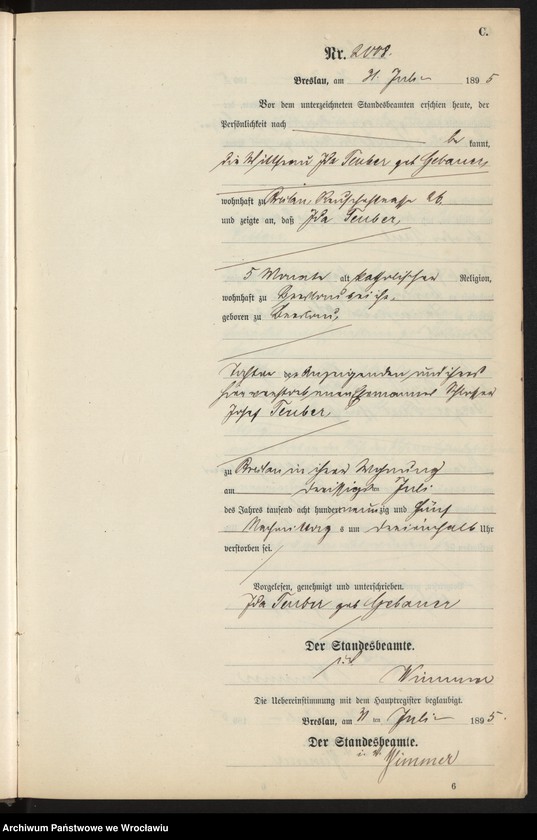 C.
Nr. 2008.
Breslau, am 31. Juli 1895
Vor dem unterzeichneten Standesbeamten erschien heute, der
Persönlichkeit nach
be kannt,
die Ida Teuber geb Gebauer
wohnhaft zu Breslau Reuschestraße 26
und zeigte an, daß Ida Teuber,
5 Monate alt, katholischer Religion,
wohnhaft zu
geboren zu Breslau,
Tochter Anzeigenden und ihres
verstorbenen Ehemannes Schlosser
Josef Teuber
zu Breslau in ihrer Wohnung
am dreißigsten Juli
des Jahres tausend acht hundert neunzig und fünf
Nachmittags um dreieinhalb Uhr
verstorben sei.
Vorgelesen, genehmigt und unterschrieben.
Ida Teuber geb Gebauer
Der Standesbeamte.
Wimmer
Die Uebereinstimmung mit dem Hauptregister beglaubigt.
Breslau, am 31 ten Juli 1895.
Der Standesbeamte.
Wimmer
6
Archiwum Państwowe we Wrocławiu